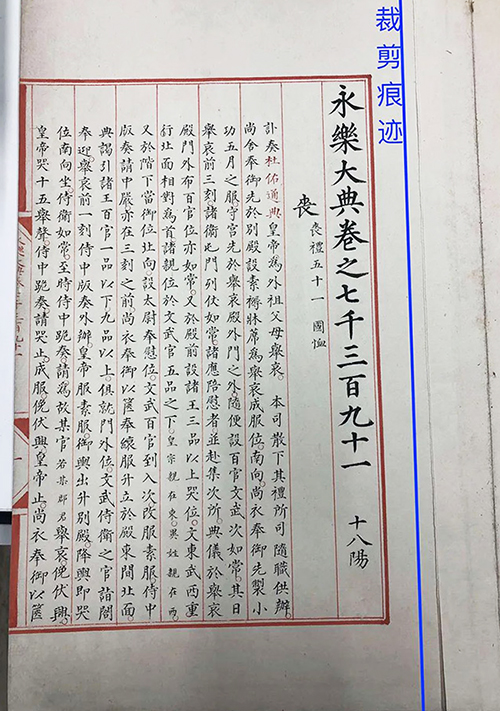 裁剪痕迹
永樂大典卷之七千三百九十一 十八陽
喪 喪禮五十一 國恤
訃奏杜佑通典皇帝為外祖父母舉哀。本司散下其禮所司隨職供辦。
尚舍奉御先於別殿設素褥牀席為舉哀成服位。南向尚衣奉御先製小
功五月之服守宮先於舉哀殿外門之外隨便設百官文武次如常。其日
舉哀前三刻諸衛屯門列仗如常。諸應陪慰者並赴集次所。典儀於舉哀
殿門外布百官位亦如常。又於殿前設諸王三品以上哭位。文東武西重
行北面相對為首諸親位於文武官五品之下。皇宗親在東。異姓親在西。
又於階下當御位北向設太尉奉慰位。文武百官到入次改服素服侍中
版奏請中嚴亦在三刻之前尚衣奉御以篋奉縗服升立於殿東間北面。
典謁引諸王百官一品以下九品以上。俱就門外位。文武侍衛之官詣閤
奉迎。舉哀前一刻侍中版奏外辦。皇帝服素服。御輿出升別殿降輿即哭
位南向坐。侍衛如常。至時侍中跪奏。請為故某官若某郡君舉哀俛伏興。
皇帝哭十五舉聲。侍中跪奏請哭止。成服俛伏興皇帝止。尚衣奉御以篋